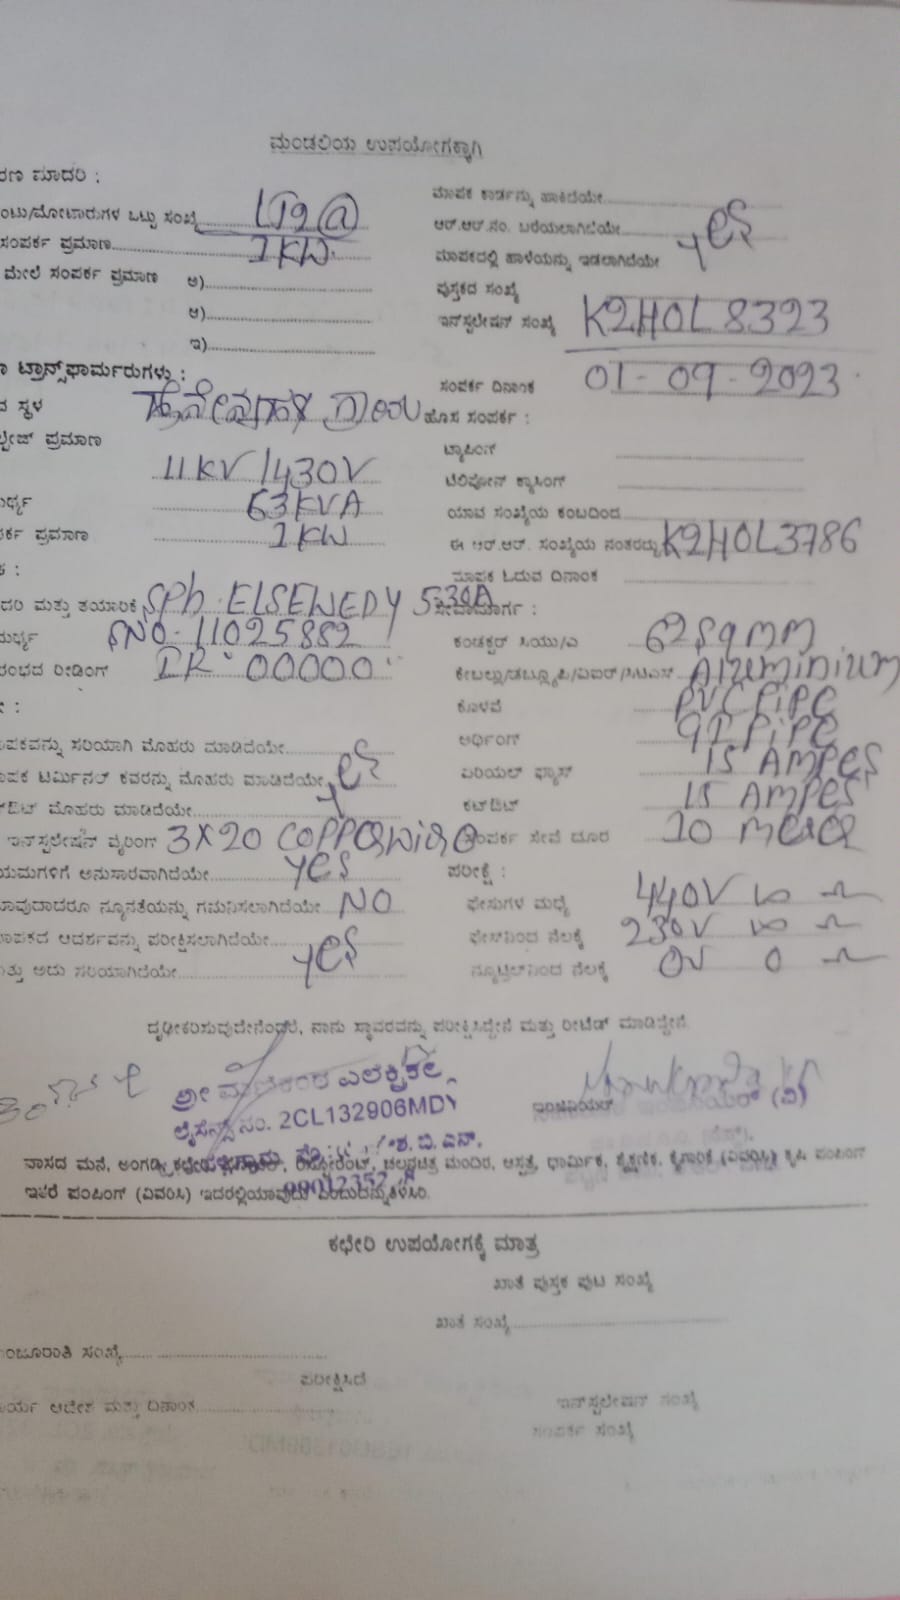 ಮಂಡಲಿಯ ಉಪಯೋಗಕ್ಕಾಗಿ
ರಣ ಮಾದರಿ :
ಮಾಪಕ ಕಾರ್ಡನ್ನು ಹಾಕಿದೆಯೇ
ಂಟು/ಮೋಟಾರುಗಳ ಒಟ್ಟು ಸಂಖ್ಯೆ
ಆರ್.ಆರ್.ನಂ. ಬರೆಯಲಾಗಿದೆಯೇ yes
ಸಂಪರ್ಕ ಪ್ರಮಾಣ 1KW
ಮಾಪಕದಲ್ಲಿ ಹಾಳೆಯನ್ನು ಇಡಲಾಗಿದೆಯೇ
ಮೇಲೆ ಸಂಪರ್ಕ ಪ್ರಮಾಣ ಅ)
ಪುಸ್ತಕದ ಸಂಖ್ಯೆ
ಆ)
ಇನ್‌ಸ್ಟಲೇಷನ್ ಸಂಖ್ಯೆ K2HOL8323
ಇ)
ಟ್ರಾನ್ಸ್‌ಫಾರ್ಮರುಗಳು :
ಸಂಪರ್ಕ ದಿನಾಂಕ 01-09-2023
ಸ್ಥಳ
ಹೊಸ ಸಂಪರ್ಕ :
ಪ್ರಮಾಣ
ಟ್ಯಾಪಿಂಗ್
11KV/430V
ಟೆಲಿಫೋನ್ ಕ್ರಾಸಿಂಗ್
63KVA
ಯಾವ ಸಂಖ್ಯೆಯ ಕಂಬದಿಂದ
ರ್ಕ ಪ್ರಮಾಣ 1KW
ಈ ಆರ್.ಆರ್. ಸಂಖ್ಯೆಯ ನಂತರದ್ದು K2HOL3786
ಮಾಪಕ ಓದುವ ದಿನಾಂಕ
ದರಿ ಮತ್ತು ತಯಾರಿಕೆ SPh. ELSEWEDY 5-30A
ಸೇವಾಮಾರ್ಗ :
SNO-11025882
ಕಂಡಕ್ಟರ್ ಸಿಯು/ಎ 6Sqmm
ರಂಭದ ರೀಡಿಂಗ್ IR: 00000
Aluminium
ಕೊಳವೆ PVC PiPe
ಪಕವನ್ನು ಸರಿಯಾಗಿ ಮೊಹರು ಮಾಡಿದೆಯೇ
ಅರ್ಥಿಂಗ್ GI PiPe
ಪಕ ಟರ್ಮಿನಲ್ ಕವರನ್ನು ಮೊಹರು ಮಾಡಿದೆಯೇ yes
ಏರಿಯಲ್ ಫ್ಯೂಸ್ 15 AMPes
ಔಟ್ ಮೊಹರು ಮಾಡಿದೆಯೇ
ಕಟ್‌ಔಟ್ 15 AMPes
ಇನ್‌ಸ್ಟಲೇಷನ್ ವೈರಿಂಗ್ 3X20
ಸಂಪರ್ಕ ಸೇವೆ ದೂರ 10
ಯಮಗಳಿಗೆ ಅನುಸಾರವಾಗಿದೆಯೇ yes
ಪರೀಕ್ಷೆ :
ಯಾವುದಾದರೂ ನ್ಯೂನತೆಯನ್ನು ಗಮನಿಸಲಾಗಿದೆಯೇ NO
ಫೇಸುಗಳ ಮಧ್ಯೆ 440V ∞ Ω
ಮಾಪಕದ ಆದರ್ಶವನ್ನು ಪರೀಕ್ಷಿಸಲಾಗಿದೆಯೇ yes
ಫೇಸ್‌ನಿಂದ ನೆಲಕ್ಕೆ 230V ∞ Ω
ಮತ್ತು ಅದು ಸರಿಯಾಗಿದೆಯೇ
ನ್ಯೂಟ್ರಲ್‌ನಿಂದ ನೆಲಕ್ಕೆ 0V 0 Ω
ದೃಢೀಕರಿಸುವುದೇನೆಂದರೆ, ನಾನು ಸ್ಥಾವರವನ್ನು ಪರೀಕ್ಷಿಸಿದ್ದೇನೆ ಮತ್ತು ರೀಟೆಡ್ ಮಾಡಿದ್ದೇನೆ
ಶ್ರೀ
ಲೈಸೆನ್ಸ್ ನಂ. 2CL132906MDY
ಇಂಜಿನಿಯರ್ (ವಿ)
ವಾಸದ ಮನೆ, ಅಂಗಡಿ, ಚಲನಚಿತ್ರ ಮಂದಿರ, ಆಸ್ಪತ್ರೆ, ಧಾರ್ಮಿಕ, ಶೈಕ್ಷಣಿಕ, ಕೈಗಾರಿಕೆ (ವಿವರಿಸಿ) ಕೃಷಿ ಪಂಪಿಂಗ್
ಇತರೆ ಪಂಪಿಂಗ್ (ವಿವರಿಸಿ)
ಕಛೇರಿ ಉಪಯೋಗಕ್ಕೆ ಮಾತ್ರ
ಖಾತೆ ಪುಸ್ತಕ ಪುಟ ಸಂಖ್ಯೆ
ಖಾತೆ ಸಂಖ್ಯೆ
ಂಜೂರಾತಿ ಸಂಖ್ಯೆ
ಪರೀಕ್ಷಿಸಿದೆ
ರ್ಯ ಆದೇಶ ಮತ್ತು ದಿನಾಂಕ
ಇನ್‌ಸ್ಟಲೇಷನ್ ಸಂಖ್ಯೆ
ಸಂಪರ್ಕ ಸಂಖ್ಯೆ